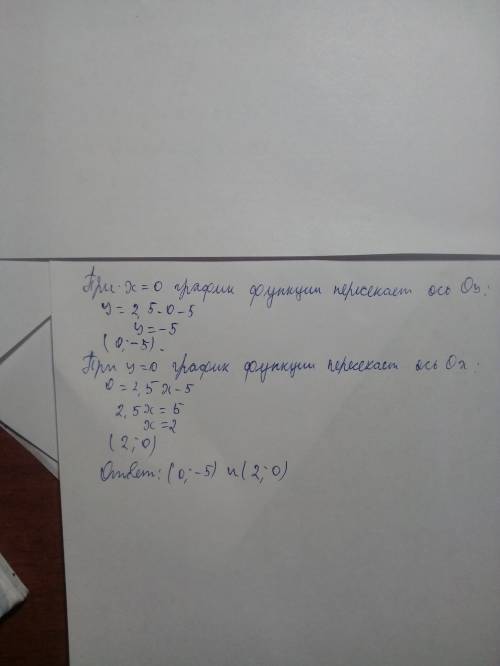 При x=0 график функции пересекает ось Оу:
y=2,5·0-5
y=-5
(0;-5).
При y=0 график функции пересекает ось Ох:
0=2,5x-5
2,5x=5
x=2
(2;0)
Ответ: (0;-5) и (2;0)